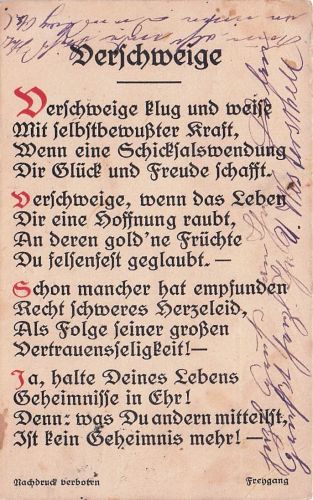 Verschweige
Verschweige klug und weise
Mit selbstbewußter Kraft,
Wenn eine Schicksalswendung
Dir Glück und Freude schafft.
Verschweige, wenn das Leben
Dir eine Hoffnung raubt,
An deren gold'ne Früchte
Du felsenfest geglaubt. —
Schon mancher hat empfunden
Recht schweres Herzeleid,
Als Folge seiner großen
Vertrauensseligkeit! —
Ja, halte Deines Lebens
Geheimnisse in Ehr!
Denn: was Du andern mitteilst,
Ist kein Geheimnis mehr! —
Nachdruck verboten
Freygang